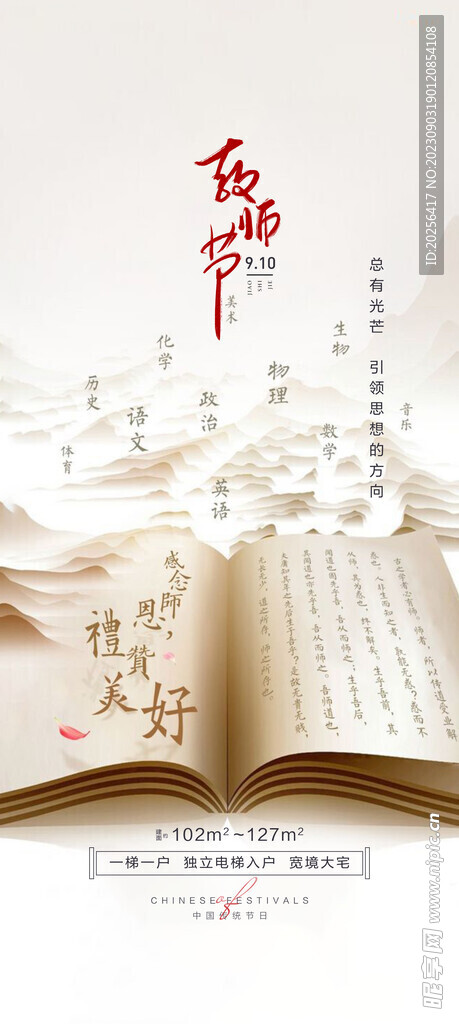 教师节
9.10
总有光芒 引领思想的方向
美术
生物
化学
物理
历史
政治
音乐
语文
数学
体育
英语
感念師恩，
禮贊
美好
古之学者必有师。师者，所以传道受业解
惑也。人非生而知之者，孰能无惑？惑而不
从师，其为惑也，终不解矣。生乎吾前，其
闻道也固先乎吾，吾从而师之；生乎吾后，
其闻道也亦先乎吾，吾从而师之。吾师道也，
夫庸知其年之先后生于吾乎？是故无贵无贱，
无长无少，道之所存，师之所存也。
建面约 102m²~127m²
一梯一户 独立电梯入户 宽境大宅
CHINESE of FESTIVALS
中国传统节日
ID:20256417 NO:20230903190120854108
昵享网 www.nipic.cn